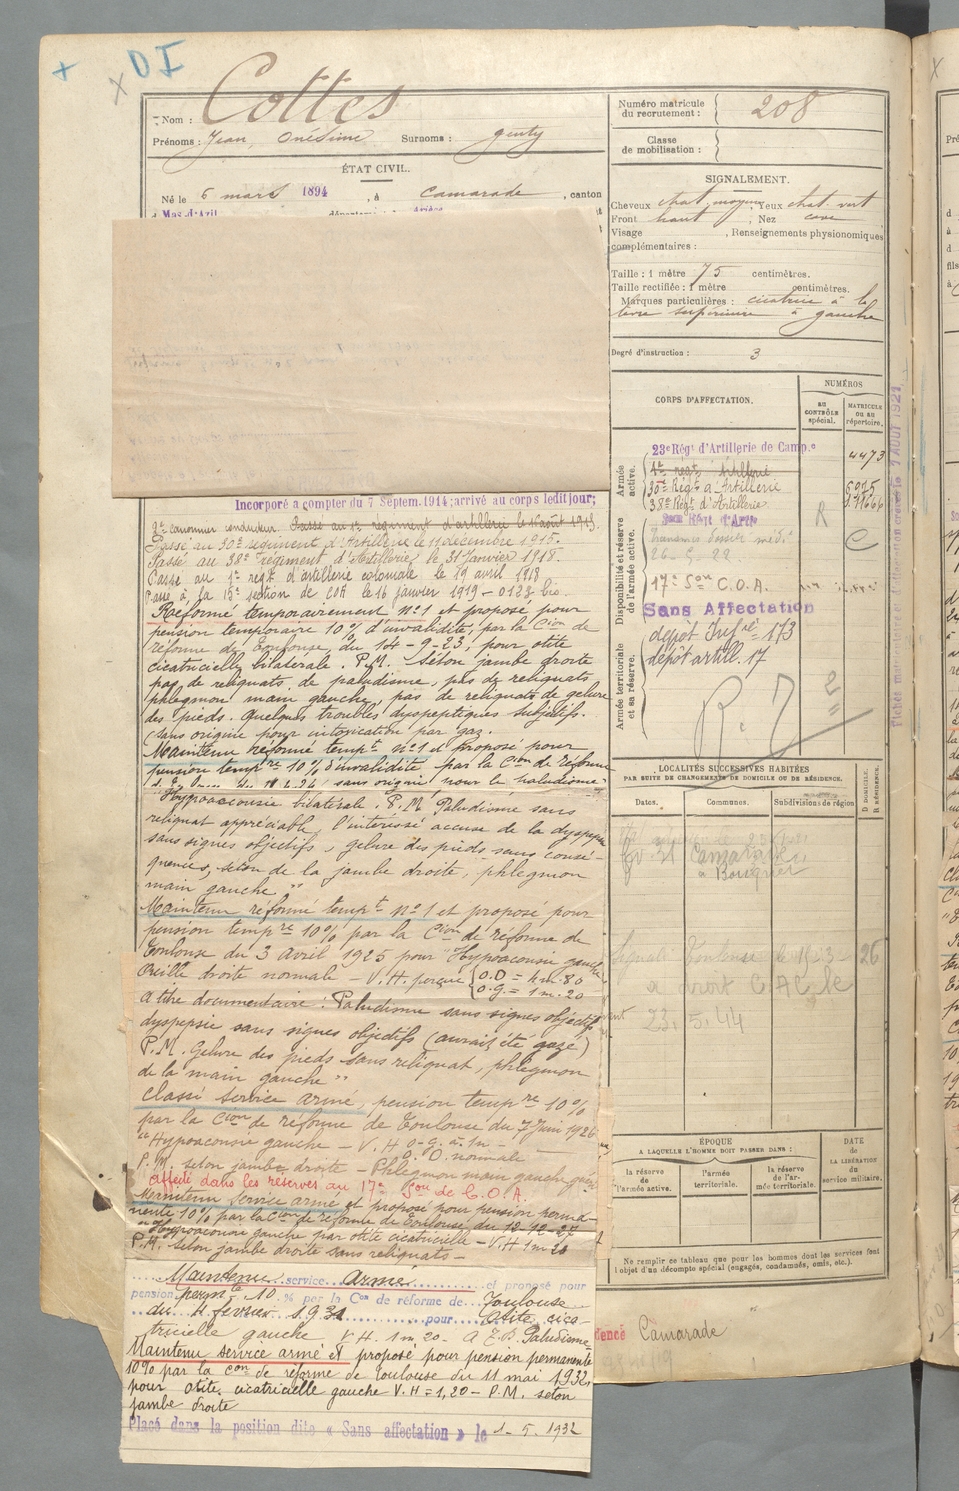 DI
Nom : Cottes
Prénoms : Jean, Onésime Surnoms : genty
ÉTAT CIVIL.
Né le 6 mars 1894, à Camarade, canton
d Mas-d'Azil
Numéro matricule du recrutement : 208
Classe de mobilisation :
SIGNALEMENT.
Cheveux chat. moyens, Yeux chat. vert
Front haut, Nez cave
Visage , Renseignements physionomiques
complémentaires :
Taille : 1 mètre 75 centimètres.
Taille rectifiée : 1 mètre centimètres.
Marques particulières : cicatrice à la
lèvre supérieure à gauche
Degré d'instruction : 3
CORPS D'AFFECTATION.
NUMÉROS
AU CONTRÔLE spécial.
MATRICULE ou au répertoire.
Armée active.
23e Régt d'Artillerie de Camp.e 4473
1er régt Artillerie
30e Régt d'Artillerie
38e Régt d'Artillerie
Disponibilité et réserve de l'armée active.
17e Son C.O.A.
Sans Affectation
Armée territoriale et sa réserve.
dépôt Infrie 173
dépôt artill. 17
Incorporé à compter du 7 Septem. 1914; arrivé au corps ledit jour;
2e canonnier conducteur. Passé au 1er régiment d'artillerie le 16 août 1915.
Passé au 30e régiment d'Artillerie le 11 décembre 1915.
Passé au 38e régiment d'Artillerie, le 31 Janvier 1918.
Passé au 1er régt d'artillerie coloniale le 19 avril 1918
Passé à la 15e section de COA le 16 janvier 1919 - 0128 bis.
Réformé temporairement n°1 et proposé pour
pension temporaire 10% d'invalidité, par la Cion de
réforme de Toulouse, du 14-9-23, pour otite
cicatricielle bilatérale. P.M. Séton jambe droite
pas de reliquats, de paludisme, pas de reliquats
phlegmon main gauche, pas de reliquats de gelure
des pieds. Quelques troubles dyspeptiques subjectifs.
sans origine pour intoxication par gaz.
Maintenu réformé tempt n°1 et proposé pour
pension tempre 10% d'invalidité par la Cion de réforme
Hypoacousie bilatérale. P.M. Paludisme sans
reliquat appréciable, l'intéressé accuse de la dyspepsie
sans signes objectifs, gelure des pieds sans consé-
quences, séton de la jambe droite, phlegmon
main gauche "
Maintenu réformé tempt n°1 et proposé pour
pension tempre 10% par la Cion de réforme de
Toulouse du 3 avril 1925 pour "Hypoacousie gauche
Oreille droite normale - V.H. perçue { O.D = 4m.80
O.G. = 1m.20
A titre documentaire : Paludisme sans signes objectifs
dyspepsie sans signes objectifs (aurait été gazé)
P.M. Gelure des pieds sans reliquat, phlegmon
de la main gauche "
Classé service armé, pension tempre 10%
par la Cion de réforme de Toulouse du 7 Juin 1926
"Hypoacousie gauche - V.H O.G. à 1m -
O.D normale -
P.M. séton jambe droite - Phlegmon main gauche guéri
Affecté dans les réserves au 17e Son de C.O.A.
Maintenu service armé et proposé pour pension perma-
nente 10% par la Cion de réforme de Toulouse du 12-12-27
"Hypoacousie gauche par otite cicatricielle - V.H 1m20
P.M. séton jambe droite sans reliquats -
Maintenu service armé et proposé pour
pension permte 10 % par la Con de réforme de Toulouse
du 4 février 1931 pour Otite cica-
tricielle gauche V.H. 1m20 - A T.D. Paludisme
Maintenu service armé et proposé pour pension permanente
10% par la Con de réforme de Toulouse du 11 mai 1932,
pour otite cicatricielle gauche V.H = 1,20 - P.M. séton
jambe droite
Placé dans la position dite « Sans affectation » le 1-5-1932
LOCALITÉS SUCCESSIVES HABITÉES
PAR SUITE DE CHANGEMENTS DE DOMICILE OU DE RÉSIDENCE.
Dates. Communes. Subdivisions de région
D DOMICILE. R RÉSIDENCE.
23.5.44
ÉPOQUE
A LAQUELLE L'HOMME DOIT PASSER DANS :
la réserve de l'armée active.
l'armée territoriale.
la réserve de l'armée territoriale.
DATE de LA LIBÉRATION du service militaire.
Ne remplir ce tableau que pour les hommes dont les services font
l'objet d'un décompte spécial (engagés, condamnés, omis, etc.).
Camarade